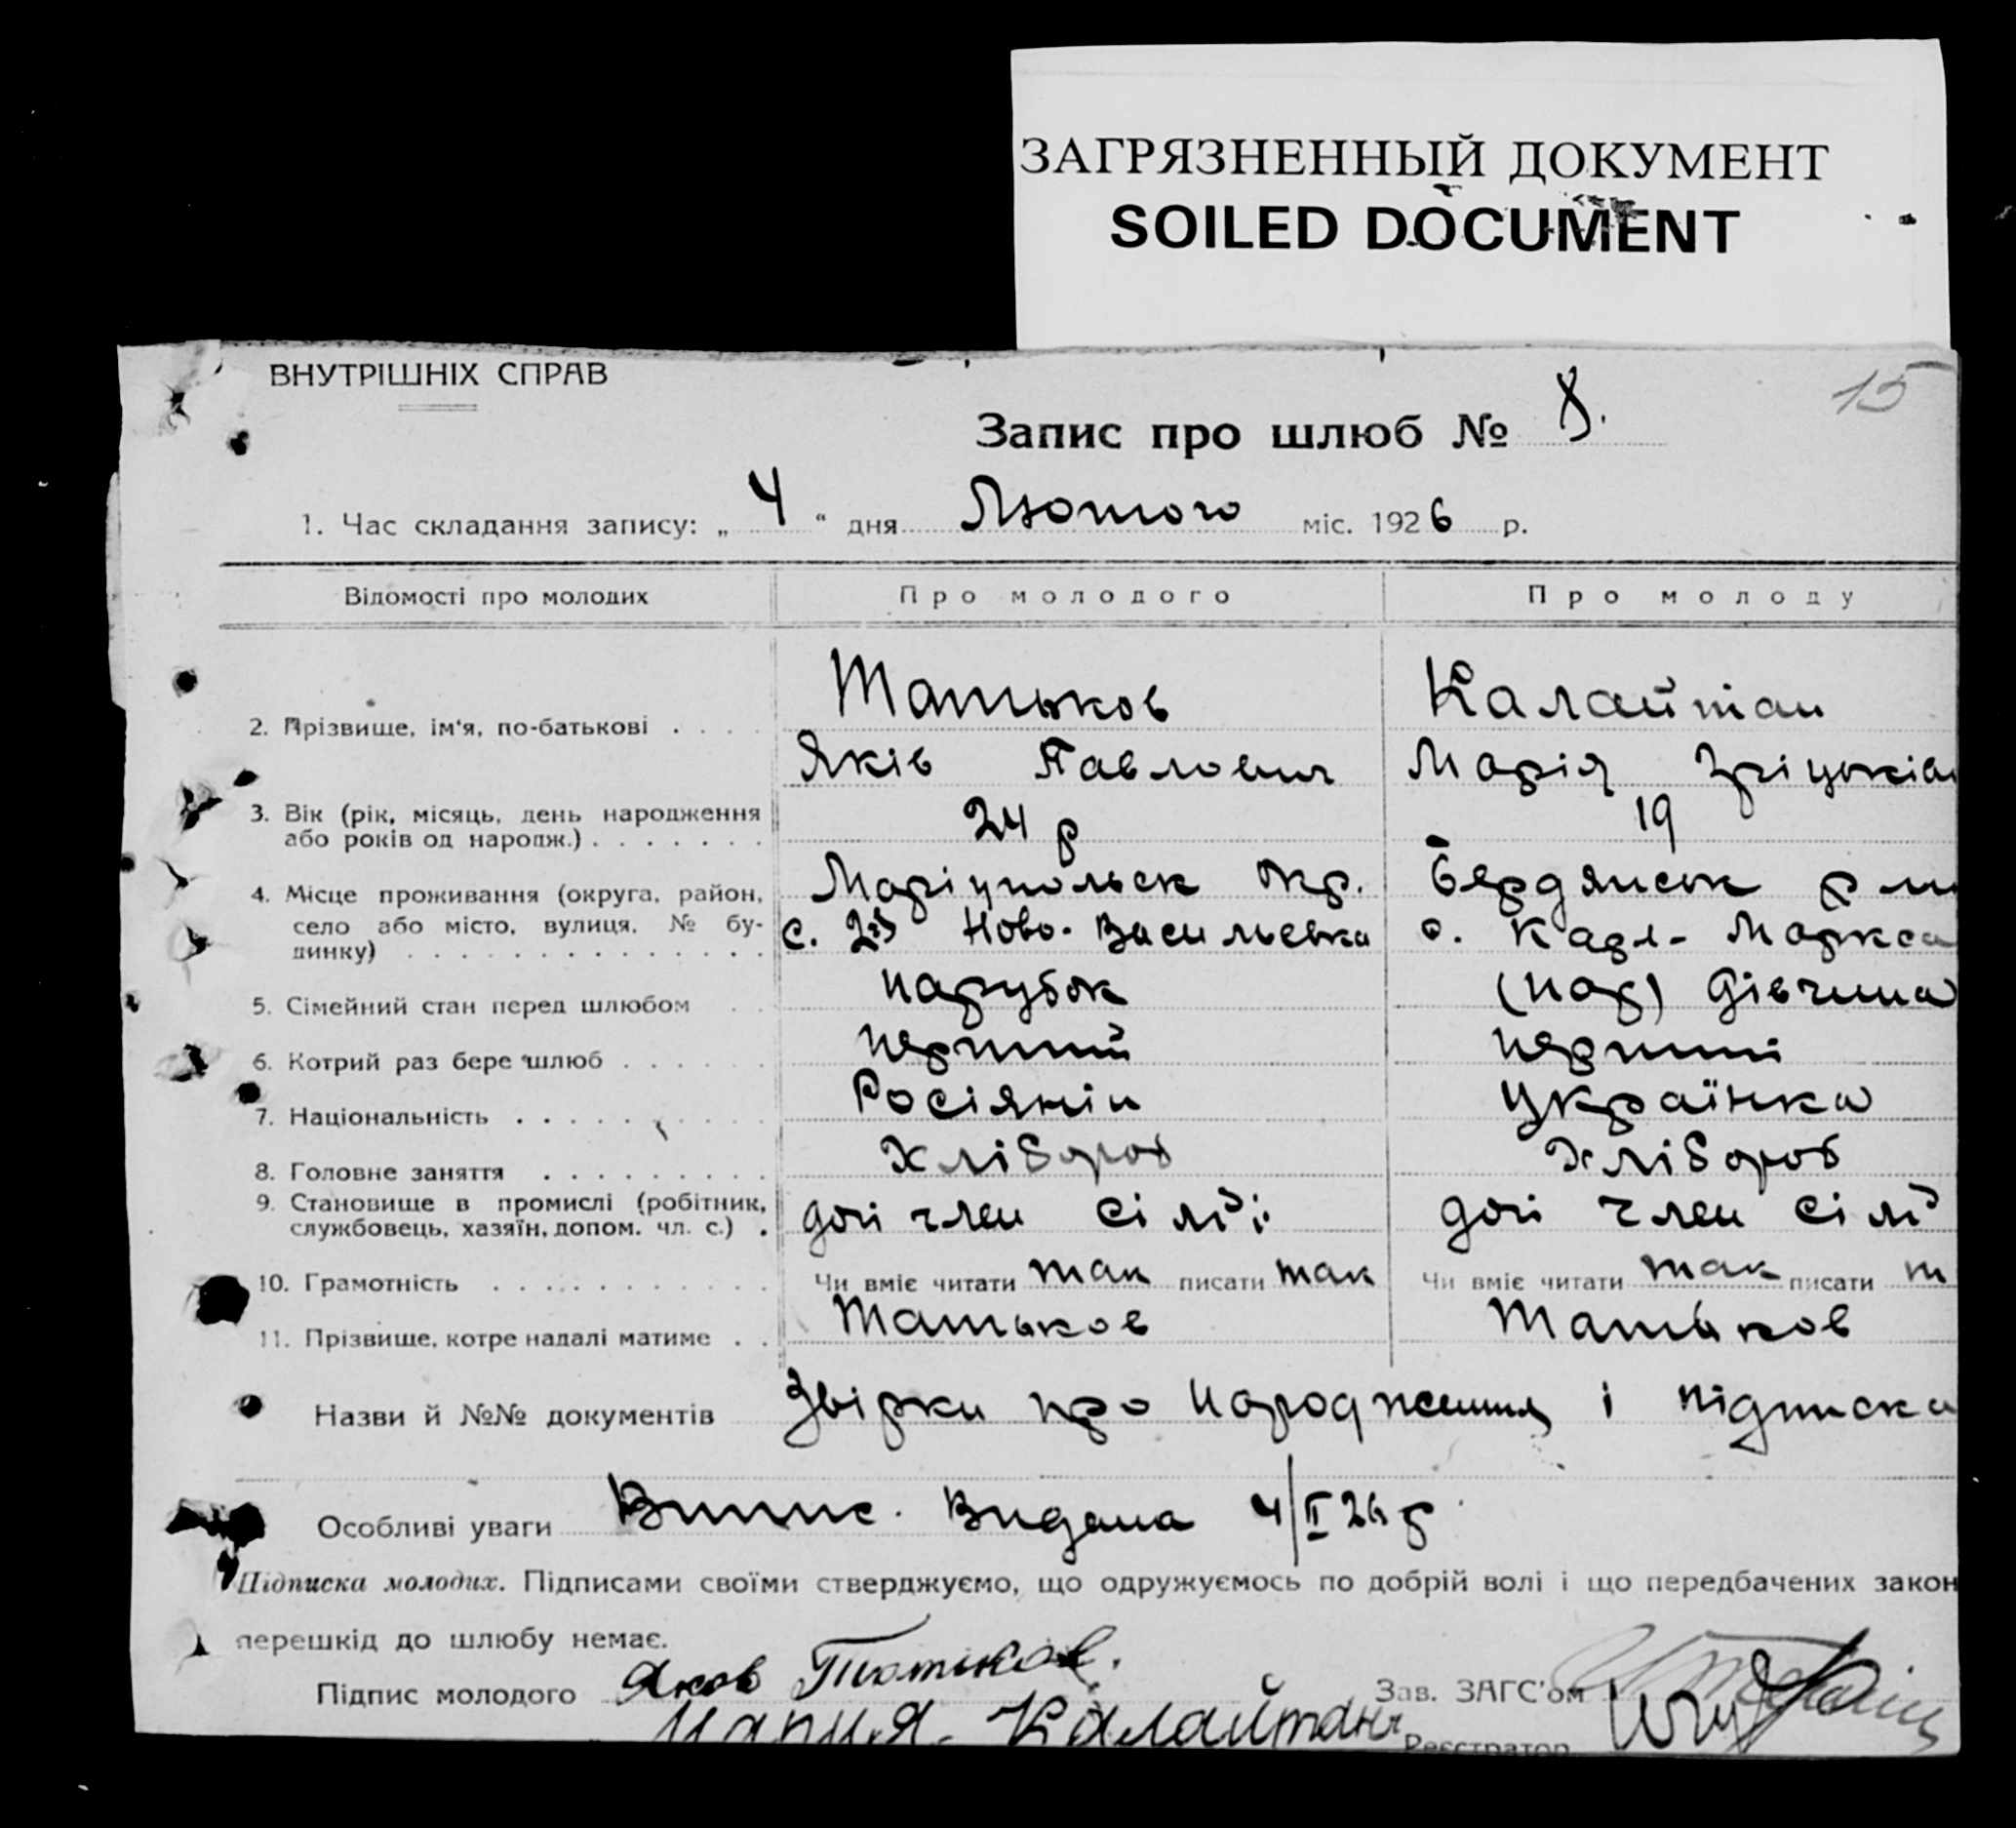 ЗАГРЯЗНЕННЫЙ ДОКУМЕНТ
SOILED DOCUMENT
ВНУТРІШНІХ СПРАВ
15
Запис про шлюб № 8.
1. Час складання запису: „ 4 “ дня Лютого міс. 1926 р.
Відомості про молодих Про молодого Про молоду
2. Прізвище, ім'я, по-батькові . . . . Татьков Калайтан
Яків Павлович Марія
3. Вік (рік, місяць, день народження 24 р 19
або років од народж.) . . . . . . .
4. Місце проживання (округа, район, Маріупольск окр. Бердянськ р
село або місто, вулиця, № бу- с. Ново-Васильевка с. Карл-Маркса
динку) . . . . . . . . . . . . . .
5. Сімейний стан перед шлюбом . . парубок (пар) дівчина
6. Котрий раз бере шлюб . . . . . . перший перший
7. Національність . . . . . . . . . . Росіянін Українка
8. Головне заняття . . . . . . . . . Хлібороб Хлібороб
9. Становище в промислі (робітник,
службовець, хазяїн, допом. чл. с.) . член сімї член сімї
10. Грамотність . . . . . . . . . . . . Чи вміє читати так писати так Чи вміє читати так писати т
11. Прізвище, котре надалі матиме . . Татьков Татьков
Назви й №№ документів про народження і підписка
Особливі уваги Випис. Видана 4/II 26 р
Підписка молодих. Підписами своїми стверджуємо, що одружуємось по добрій волі і що передбачених закон
перешкід до шлюбу немає.
Підпис молодого Яков Зав. ЗАГС'ом
Мария Калайтан Реєстратор